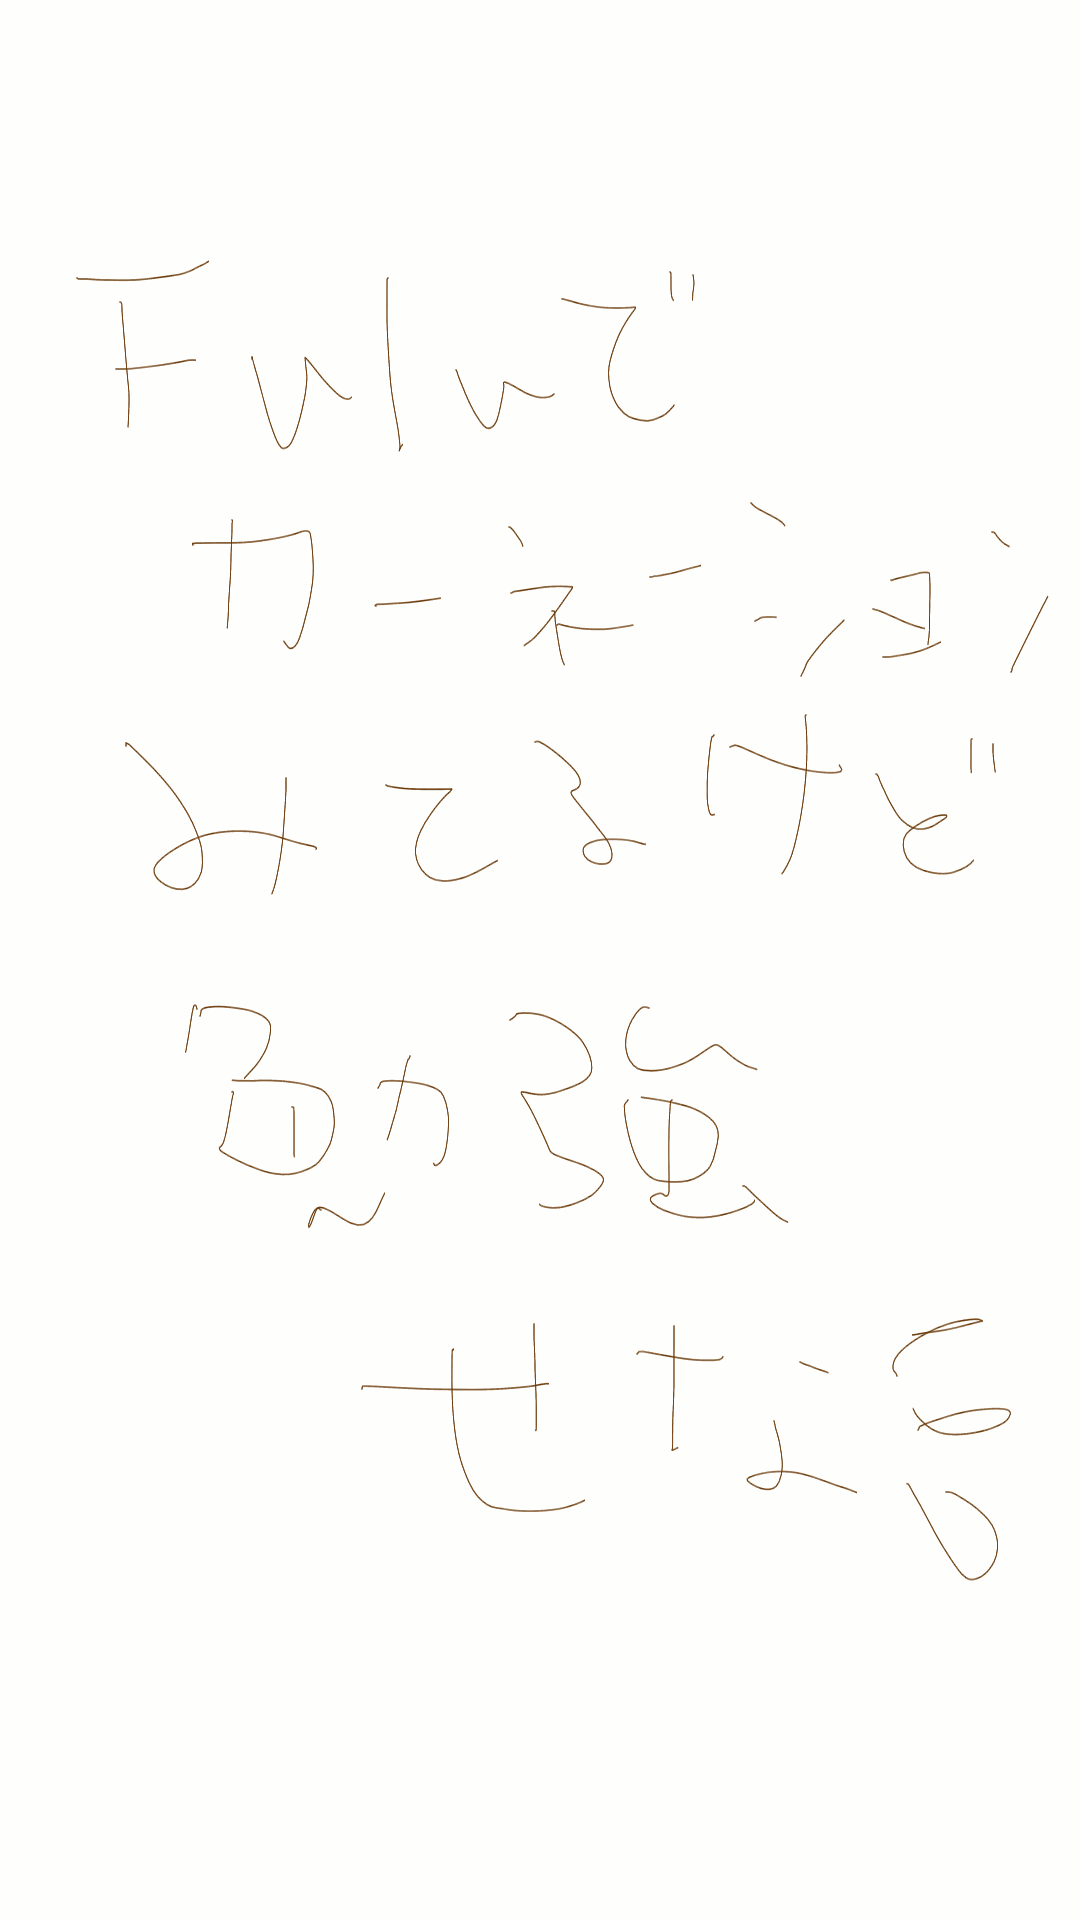 Fuluで
カーネーション
みてるけど
勉強
せな